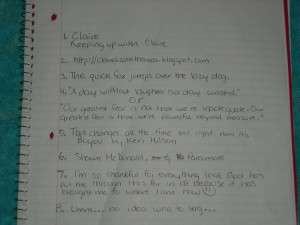 1. Claire
Keeping up with Claire
2. http://claireisonthemove.blogspot.com
3. The quick fox jumps over the lazy dog.
4. "A day without laughter is a day wasted."
OR
"Our greatest fear is not that we're inadequate. Our
greatest fear is that we're powerful beyond measure."
5. This changes all the time but right now it's
by Keri Hilson
6. Shawn McDonald, or Paramore
7. I'm so thankful for everything that God has
put me through this far in life because it has
brought me to where I am now
8. Umm.... no idea who to tag...